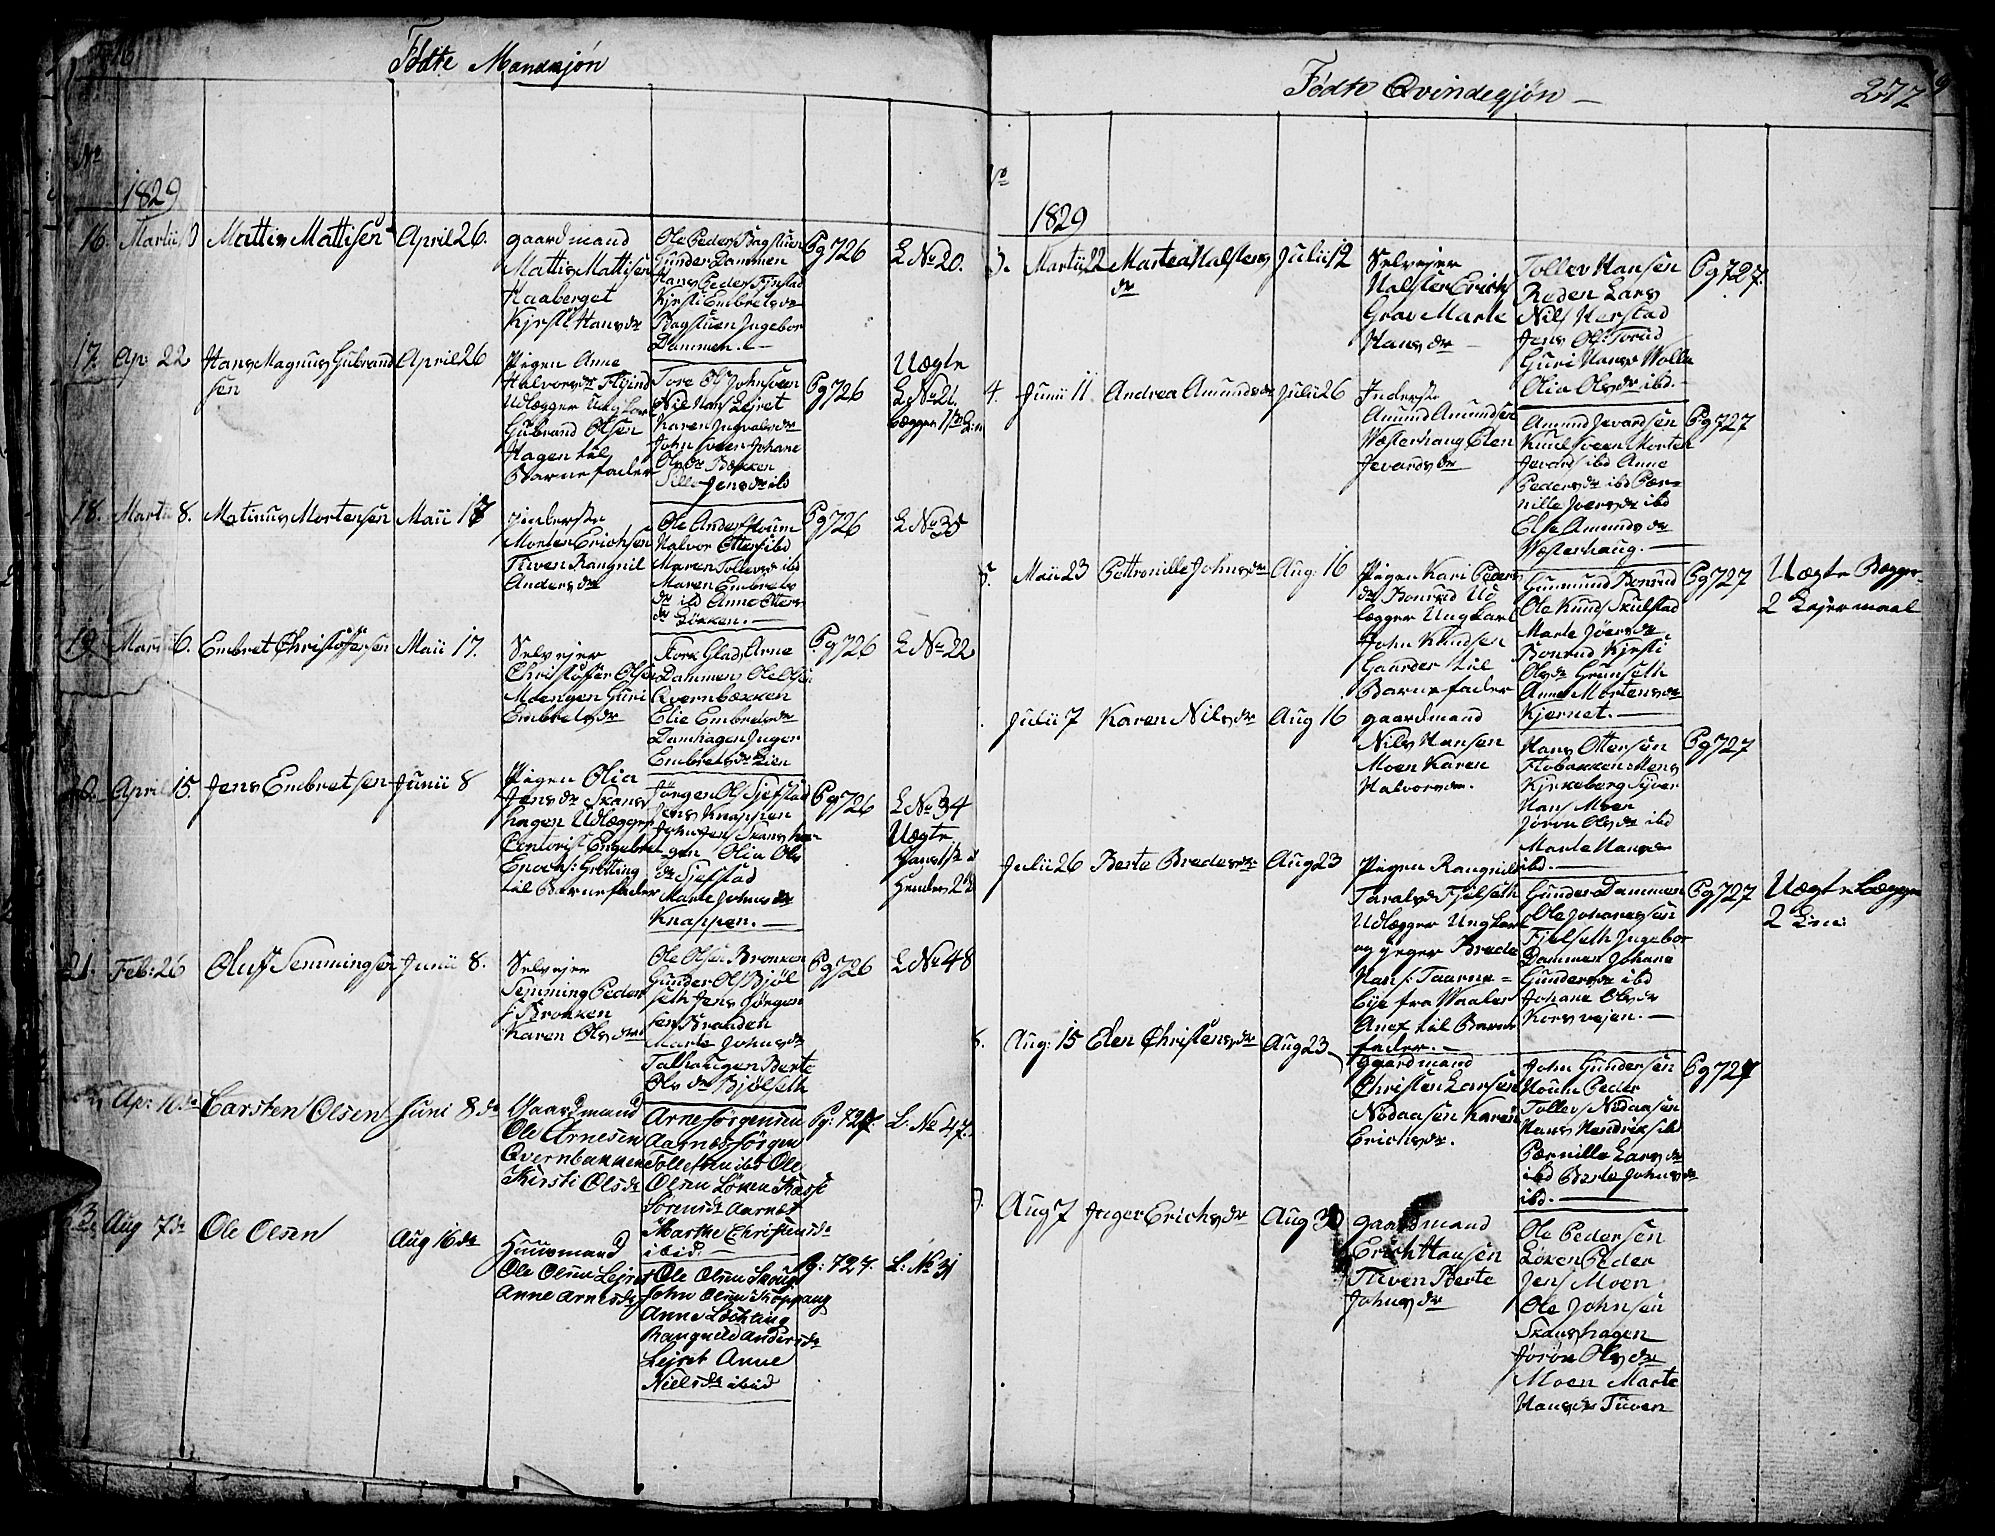 Fødte Mandkjøn
No
1829
16. Martii 10 Mattis Mattisen April 26.
gaardmand
Mattis Mattisen
Haaberget
Kjersti Hansdr
Ole Peder Bagstuen
Gunder Dammen
Hans Peder
Kjersti Embretsdr
Bagstuen Ingebor
Dammen.
Pg 726
L No 20.
17. Ap: 22 Hans Magnus Gubrand
sen
April 26
Pigen Anne
Halvorsdr
Udlægger Ung Kar
Gubrand Olsen
Hagen til
Barnefader
Tore Ols Johnsveen
Nil Hans Lejret
Karen
Johnsveen Johane
Olsdr Bækken
Jensdr ibd
Pg 726
Uægte
L No 21.
18. Martii 8. Matinus Mortensen Maii 17
Inderste
Morten Erichsen
Tuven Rangnil
Andersdr
Ole Anders
Halvor Otters ibd
Maren Tollevsd ibd
Maren Embrets
dr ibd Anne Otters
dr Løkken.
Pg 726
L No 35
19. 6. Embret Christoffersen Maii 17.
Selvejer
Christoffer Olsen
Moengen Guri
Embretsdr
Glad, Arne
Dammen Ole Ols
Qvernbækken
Elie Embretsdr
Damhagen Inger
Embretsdr Lien
Pg 726
L No 22
20. April 15. Jens Embretsen Junii 8
Pigen Olia
Jensdr Skans
hagen Udlægger
Engebret
Enoch: Grøtting
til Barnefader
Jørgen Ols Sjefstad
Jens Knappen
John Jens Skansha-
gen Olia Ols
dr Sjefstad
Marte Johnsdr
Knappen.
Pg 726
L No 34
Uægte
Hans 1ste
Hendes 2de
21. Feb: 26 Oluf Semmingsen Junii 8.
Selvejer
Semming Peder
s Bronken
Karen Olsdr
Ole Olsen Bronken
Gunder Ols Bjøl
seth Jens Jørgen
sen Branden
Marte Johnsdr
Talhaugen Berte
Olsdr Bjølseth
Pg 726
L No 48
Ap: 10de Carsten Olsen Juni 8de
Gaardmand
Ole Arnesen
Qvernbakken
Kirsti Olsdr
Arne Jørgensen
Aarnæs Jørgen
Tollefsen ibd Ole
Olsen Løken
Sørensdr Aarnæs
Marthe Christensdr
ibid.
Pg: 727. L: No 47.
23. Aug 7de Ole Olsen Aug 16de
Huusmand
Ole Olsen Lejret
Anne Arnesdr
Ole Olsen
John Olsen Koppang
Anne Løchting
Rangnild Andersdr
Lejret Anne
Nielsdr ibid
Pg: 727. L: No 31
Fødte Qvindekjøn —
277
No
1829
3. Martii 22 Martea Halstens
dr
Julii 12
Selvejer
Halsten Erich
Grav Marte
Hansdr
Tollev Hansen
Røden Lars
Nils Harstad
Jens Ols: Torud
Guri Hansd Wolle
Olia Olsdr ibd.
Pg 727.
4. Junii 11. Andrea Amundsdr Julii 26
Inderste
Amund Amundsen
Westerhaug Elen
Jevardsdr
Amund Jevardsen
Knudsveen Morten
Jevards ibd Anne
Pedersdr ibd Pær-
nille Joersdr ibd
Else Amundsdr
Westerhaug.
Pg 727
5. Maii 23 Pettronille Johnsdr Aug: 16
Pigen Kari Peders
dr Bonrud Ud
lægger Ungkarl
John Knudsen
Gaarder til
Barnefader
Gunmund Bonrud
Ole Knuds Skulstad
Marte Joersdr
Bonrud Kjersti
Olsdr Grønseth
Anne Mortensdr
Kjernet.
Pg 727
Uægte Begges
2 Lejermaal
Julii 7 Karen Nilsdr Aug 16
gaardmand
Nils Hansen
Moen Karen
Halvorsdr.
Hans Ottersen
Flobakken Mons
Kirkeberg Syver
Hans Moen
Jøron Olsdr ibd
Marte Hansdr
ibd.
Pg 727
Julii 26 Berte Bredesdr Aug 23
Pigen Rangnild
Taralsd Fjelseth
Udlægger Ungkarl
og jæger Brede
Hans: Taarne=
bye fra Waaler
Anex til Barne
fader.
Gunder Dammen
Ole Johanessen
Fjelseth Ingebor
Dammen Johane
Gundersdr ibd
Johane Olsdr
Korsvejen.
Pg 727
Uægte Begges
2 Leie:
8. Aug: 15 Elen Christensdr Aug 23
gaardmand
Christen Larsen
Nødaasen Karen
Erichsdr.
John Gundersen
Houm Peder
Tollevs Nødaasen
Hans Hendriks ibd
Pærnille Larsdr
ibd Berte Johnsdr
ibd.
Pg 727
9. Aug 7 Inger Erichsdr Aug 30
gaardmand
Erich Hansen
Tuven Berte
Johnsdr
Ole Pedersen
Løken Peder
Jens Moen
Ole Johnsen
Skanshagen
Jørøn Olsdr
Moen Marte
Hansdr Tuven